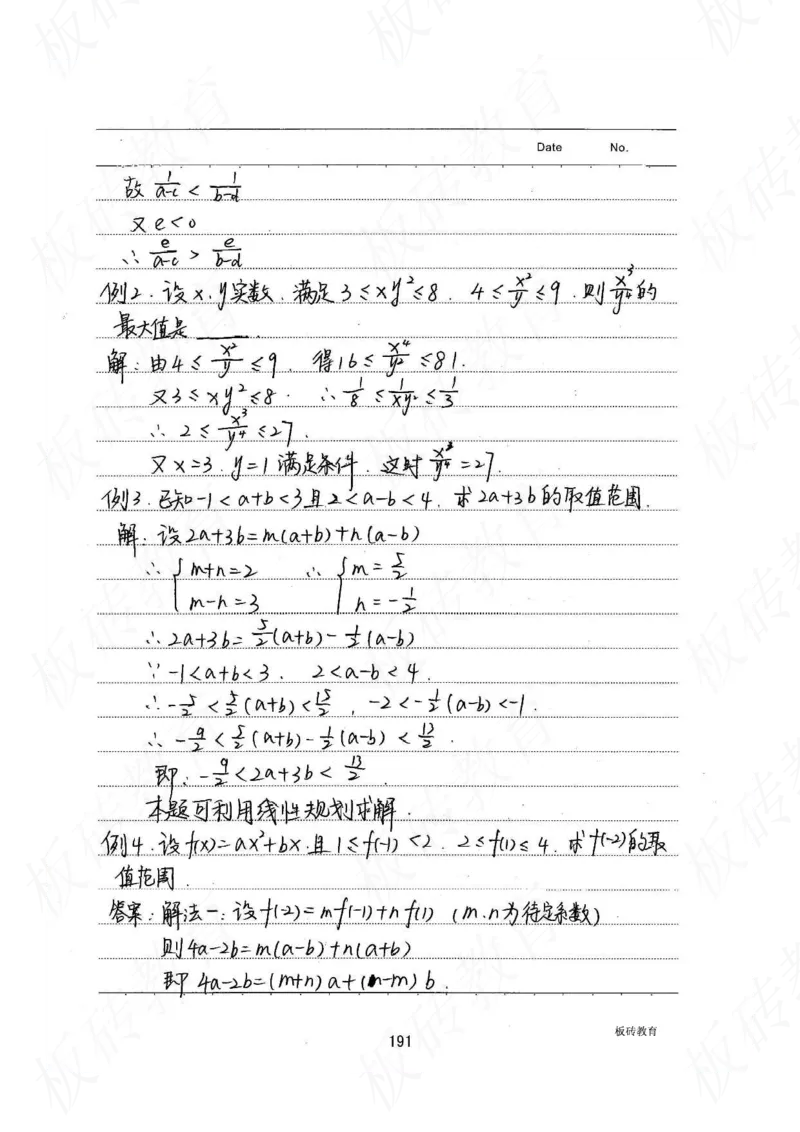 Date No.
故 1/(a-c) < 1/(b-d)
又 e<0
∴ e/(a-c) > e/(b-d)
例2. 设 x、y实数、满足 3≤xy²≤8 . 4≤x²/y≤9 .则 x³/y⁴的
最大值是 ____ .
解：由4≤ x²/y ≤9 . 得16≤ x⁴/y² ≤81.
又3≤xy²≤8 . ∴ 1/8 ≤ 1/xy² ≤ 1/3
∴ 2≤ x³/y⁴ ≤27 .
又 x=3 . y=1 满足条件 . 这时 x³/y⁴ =27.
例3. 已知-1<a+b<3且2<a-b<4. 求 2a+3b的取值范围.
解：设2a+3b=m(a+b)+n(a-b)
∴ { m+n=2 ∴ { m= 5/2
m-n=3 n=-1/2
∴ 2a+3b= 5/2(a+b)- 1/2(a-b)
∵ -1<a+b<3 . 2<a-b<4 .
∴ -5/2 < 5/2(a+b)< 15/2 , -2<-1/2(a-b)<-1 .
∴ -9/2 < 5/2(a+b)-1/2(a-b) < 13/2 .
即：-9/2<2a+3b< 13/2 .
本题可利用线性规划求解 .
例4. 设f(x)=ax²+bx.且 1≤f(-1)<2 . 2≤f(1)≤4 . 求f(-2)的取
值范围.
答案：解法一：设 f(-2)=mf(-1)+nf(1) (m、n为待定系数)
则4a-2b=m(a-b)+n(a+b)
即 4a-2b=(m+n)a+(n-m)b .
板砖教育
191